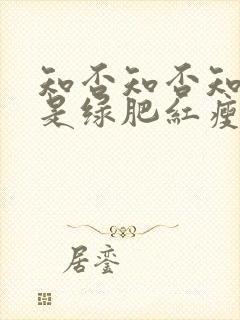 知否知否知
是绿肥红瘦
居銮